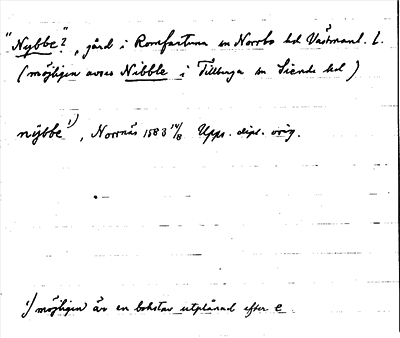 "Nybbe"?, gård i Romfartuna sn Norrbo hd Västmanl. l.
(möjligen avses Nibble i Tillberga sn Siende hd)
nÿbbe¹), Norrnäs 1583 14/8 Upps. dipl. orig.
¹) möjligen är en bokstav utplånad efter e.